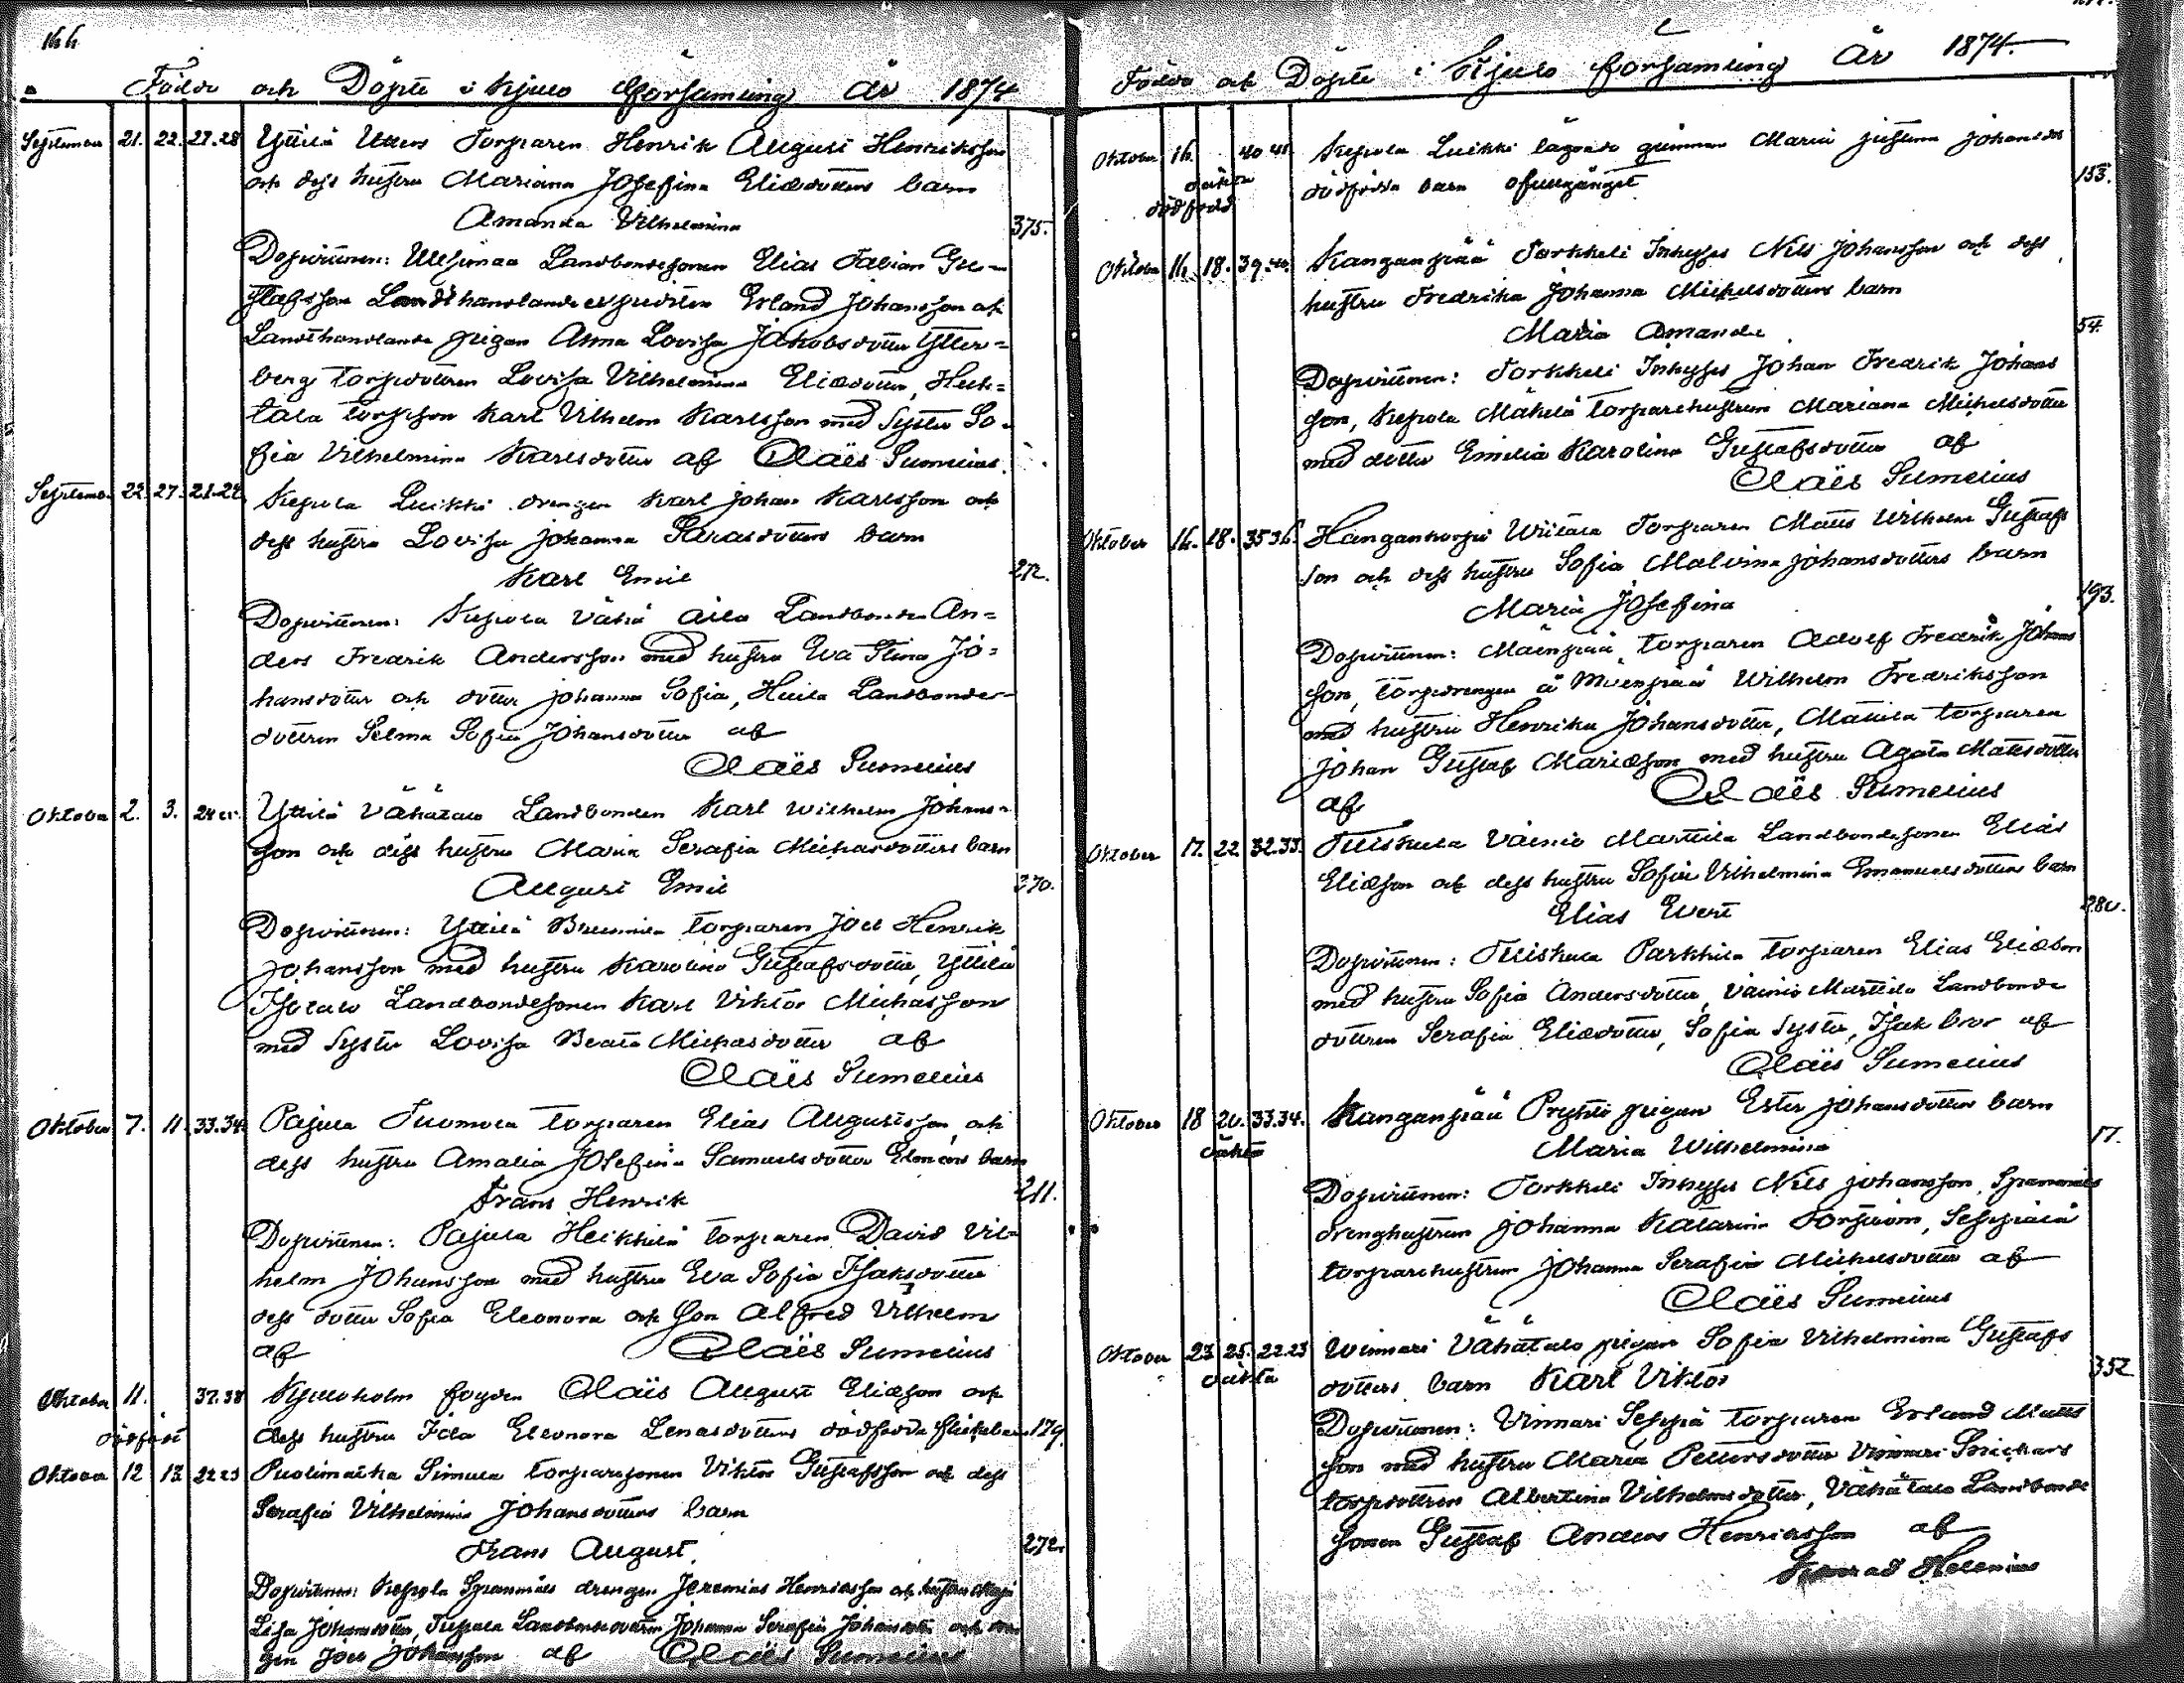 166
Födde och Döpte i Kjulo församling År 1874
September 21. 22. 27.28 Yttilä Utters Torparen Henrik August Henriksson
och dess hustru Mariana Josefina Eliædotters barn
Amanda Vilhelmina 375.
Dopvittnen: Landbondesonen Elias Fabian Gu-
stafsson Landthandlande expediten Erland Johansson och
Landthandlande pigan Anna Lovisa Jakobsdotter Ytter-
berg torpdottren Lovisa Vilhelmina Eliædotter, Heik-
tala torpson Karl Vilhelm Karlsson med syster So-
fia Vilhelmina Karlsdotter af Claës Sumelius
September 22. 27. 21.22 Kepola Luikki drengen Karl Johan Karlsson och
dess hustru Lovisa Johanna barn
Karl Emil 272.
Dopvittnen: Kepola Vähä Landbonden An-
ders Fredrik Andersson med hustru Eva Stina Jo-
hansdotter och dotter Johanna Sofia, Landbonde-
dottren Selma Sofia Johansdotter af
Claës Sumelius
Oktober 2. 3. Yttilä Vähätalo Landbonden Karl Wilhelm Johans-
son och dess hustru Maria Serafia Michasdotters barn
August Emil 370.
Dopvittnen: Yttilä torparen Joel Henrik
Johansson med hustru Karolina Gustafsdotter, Yttilä
Isotalo Landbondesonen Karl Viktor Michasson
med syster Lovisa Beata Michasdotter af
Claës Sumelius
Oktober 7. 11. 33.34. Pajula Tuomola torparen Elias Augustsson och
dess hustru Amalia Josefina Samuelsdotter barn
Frans Henrik 211.
Dopvittnen: Pajula Heikkilä torparen David Vil-
helm Johansson med hustru Eva Sofia Isaksdotter
dess dotter Sofia Eleonora och son Alfred Vilhelm
af Claës Sumelius
Oktober 11. 37.38 Kjuloholm fogden Claës August Eliæson och
dödfödt dess hustru Ida Eleonora Lenasdotters dödfödda flickebarn 179.
Oktober 12 13 22.23 Puolimatka Simula torparsonen Viktor Gustafsson och dess
Serafia Vilhelmina Johansdotters barn
Frans August 272.
Dopvittnen: Kepola Spannmäes drengen Jeremias Henriksson och hustru Maja
Lisa Johansdotter, Landbondedottren Johanna Serafia Johansdotter och
gen Joel Johansson af Claës Sumelius
Födde och Döpte i Kjulo församling År 1874
Oktober 16. 40.41. Kepola Luikki Maria Justina Johansdot
oäkta dödfödda barn ofullgånget 153.
dödfödd
Oktober 16. 18. 39.40. Kanganpää Torkkeli Inhyses Nils Johansson och dess
hustru Fredrika Johanna Michelsdotters barn
Maria Amanda 54.
Dopvittnen: Torkkeli Inhyses Johan Fredrik Johans
son, Kepola Mäkelä torparehustrun Mariana Michelsdotter
med dotter Emilia Karolina Gustafsdotter af
Claës Sumelius
Oktober 16. 18. 35.36. Hangankorpi Wiitala Torparen Matts Wilhelm Gustafs
son och dess hustru Sofia Malvina Johansdotters barn
Maria Josefina 193.
Dopvittnen: Mäenpää torparen Adolf Fredrik Johans
son, torpdrengen å Mäenpää Wilhelm Fredriksson
med hustru Henrika Johansdotter, Mattila torparen
Johan Gustaf Mariæson med hustru Agata Mattsdotter
af Claës Sumelius
Oktober 17. 22. 32.33. Tuiskula Vainio Marttila Landbondesonen Elias
Eliæson och dess hustru Sofia Vilhelmina Emanuelsdotters barn
Elias Evert 280.
Dopvittnen: Tuiskula Parkkila torparen Elias Eliæson
med hustru Sofia Andersdotter, Vainio Marttila Landbonde
dottren Serafia Eliædotter, Sofia syster, Isak bror af
Claës Sumelius
Oktober 18 20. 33.34. Kanganpää Pryhti pigan Ester Johansdotters barn
oäkta Maria Wilhelmina 17.
Dopvittnen: Torkkeli Inhyses Nils Johansson, Spannmäes
drenghustrun Johanna Katarina Forsström, Seppälä
torparehustrun Johanna Serafia Michelsdotter af
Claës Sumelius
Oktober 23 25. 22.23 Winnari Vähätalo pigan Sofia Vilhelmina Gustafs
oäkta dotters barn Karl Viktor 352
Dopvittnen: Vinnari Seppä torparen Erland Matts
son med hustru Maria Pettersdotter Vinnari Snickars
torpdottren Albertina Vilhelmsdotter, Vähätalo Landbonde
sonen Gustaf Anders Henriksson af
Konrad Helenius